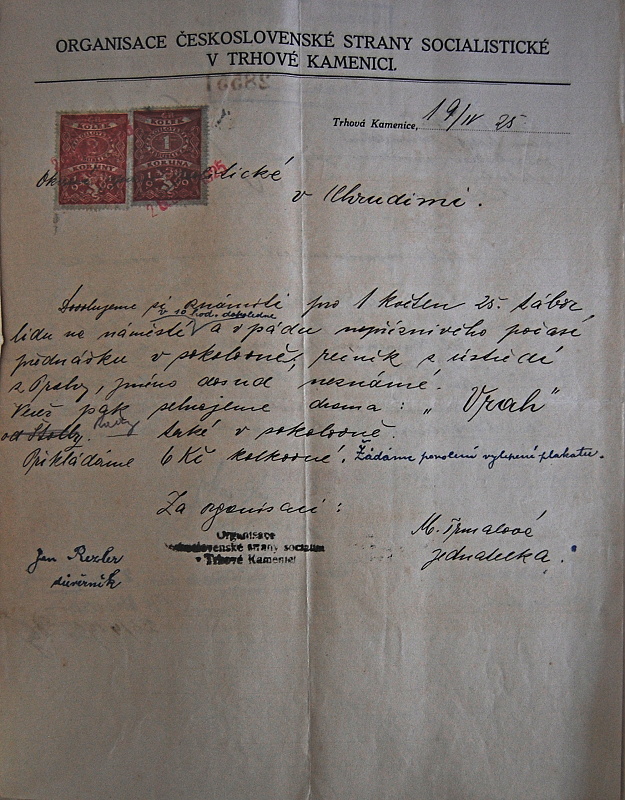 ORGANISACE ČESKOSLOVENSKÉ STRANY SOCIALISTICKÉ
V TRHOVÉ KAMENICI.
28551
Trhová Kamenice, 19/IV 25
KOLEK KOLEK
2 1
KORUNY KORUNA
1919 1919
litické
v Chrudimi.
Dovolujeme si oznámiti pro 1 květen 25. tábor
v 10 hod. dopoledne
lidu na náměstí a v pádu nepříznivého počasí
přednášku v sokolovně, řečník z ústředí
z Prahy, jméno dosud neznámé.
pak sehrajeme drama: „Vrah"
od Stolby. také v sokolovně.
Přikládáme 6 Kč kolkovné. Žádáme povolení vylepení plakátu.
Za organisaci:
Organisace
československé strany socialis
v Trhové Kamenici
Jan Rezler
důvěrník
M. Trmalová
jednatelka.